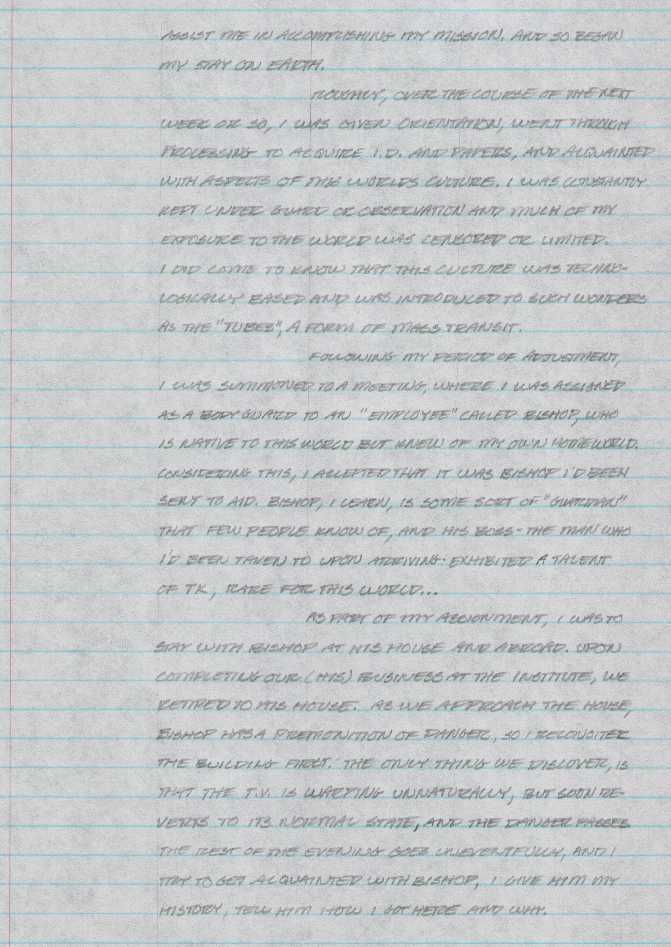 ASSIST ME IN ACCOMPLISHING MY MISSION. AND SO BEGAN
MY STAY ON EARTH.
ROUGHLY, OVER THE COURSE OF THE NEXT
WEEK OR SO, I WAS GIVEN ORIENTATION, WENT THROUGH
PROCESSING TO ACQUIRE I.D. AND PAPERS, AND ACQUAINTED
WITH ASPECTS OF THIS WORLDS CULTURE. I WAS CONSTANTLY
KEPT UNDER GUARD OR OBSERVATION AND MUCH OF MY
EXPOSURE TO THE WORLD WAS CENSORED OR LIMITED.
I DID COME TO KNOW THAT THIS CULTURE WAS TECHNO-
LOGICALLY BASED AND WAS INTRODUCED TO SUCH WONDERS
AS THE "TUBES", A FORM OF MASS TRANSIT.
FOLLOWING MY PERIOD OF ADJUSTMENT,
I WAS SUMMONED TO A MEETING, WHERE I WAS ASSIGNED
AS A BODYGUARD TO AN "EMPLOYEE" CALLED BISHOP, WHO
IS NATIVE TO THIS WORLD BUT KNEW OF MY OWN HOMEWORLD.
CONSIDERING THIS, I ACCEPTED THAT IT WAS BISHOP I'D BEEN
SENT TO AID. BISHOP, I LEARN, IS SOME SORT OF "GUARDIAN"
THAT FEW PEOPLE KNOW OF, AND HIS BOSS - THE MAN WHO
I'D BEEN TAKEN TO UPON ARRIVING - EXHIBITED A TALENT
OF TK, RARE FOR THIS WORLD...
AS PART OF MY ASSIGNMENT, I WAS TO
STAY WITH BISHOP AT HIS HOUSE AND ABROAD. UPON
COMPLETING OUR (HIS) BUSINESS AT THE INSTITUTE, WE
RETIRED TO HIS HOUSE. AS WE APPROACH THE HOUSE,
BISHOP HAS A PREMONITION OF DANGER, SO I RECONOITER
THE BUILDING FIRST. THE ONLY THING WE DISCOVER, IS
THAT THE T.V. IS WARPING UNNATURALLY, BUT SOON RE-
VERTS TO ITS NORMAL STATE, AND THE DANGER PASSES.
THE REST OF THE EVENING GOES UNEVENTFULLY, AND I
TRY TO GET ACQUAINTED WITH BISHOP, I GIVE HIM MY
HISTORY, TELL HIM HOW I GOT HERE AND WHY.